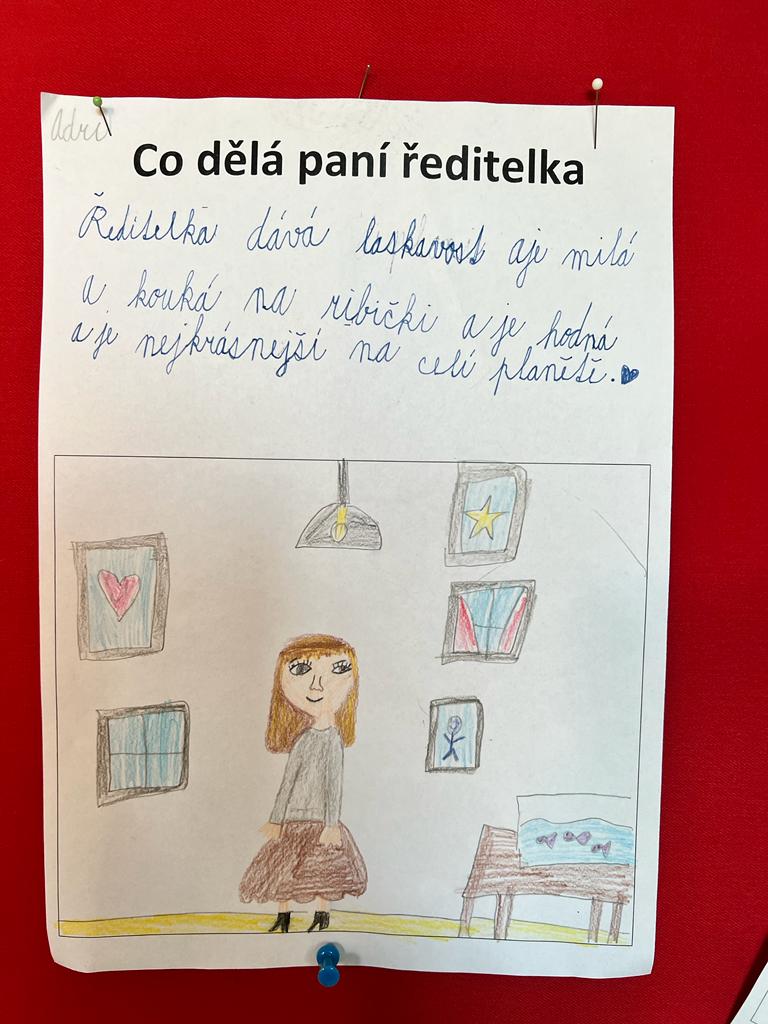 Adri
Co dělá paní ředitelka
Ředitelka dává laskavost aje milá
a kouká na ribički a je hodná
a je nejkrásnejší na celí planětě.